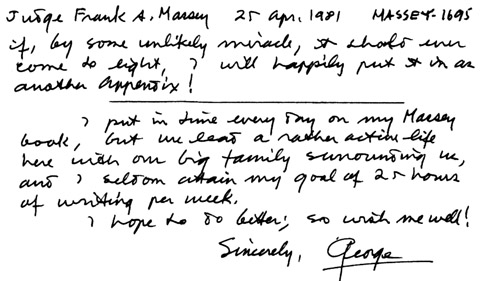 Judge Frank A. Massey 25 Apr. 1981 MASSEY-1695
if, by some unlikely miracle, it should ever
come to light, I will happily put it in as
another appendix!
I put in time every day on my Massey
book, but we lead a rather active life
here with our big family surrounding us,
and I seldom attain my goal of 25 hours
of writing per week.
I hope to do better; so wish me well!
Sincerely, George